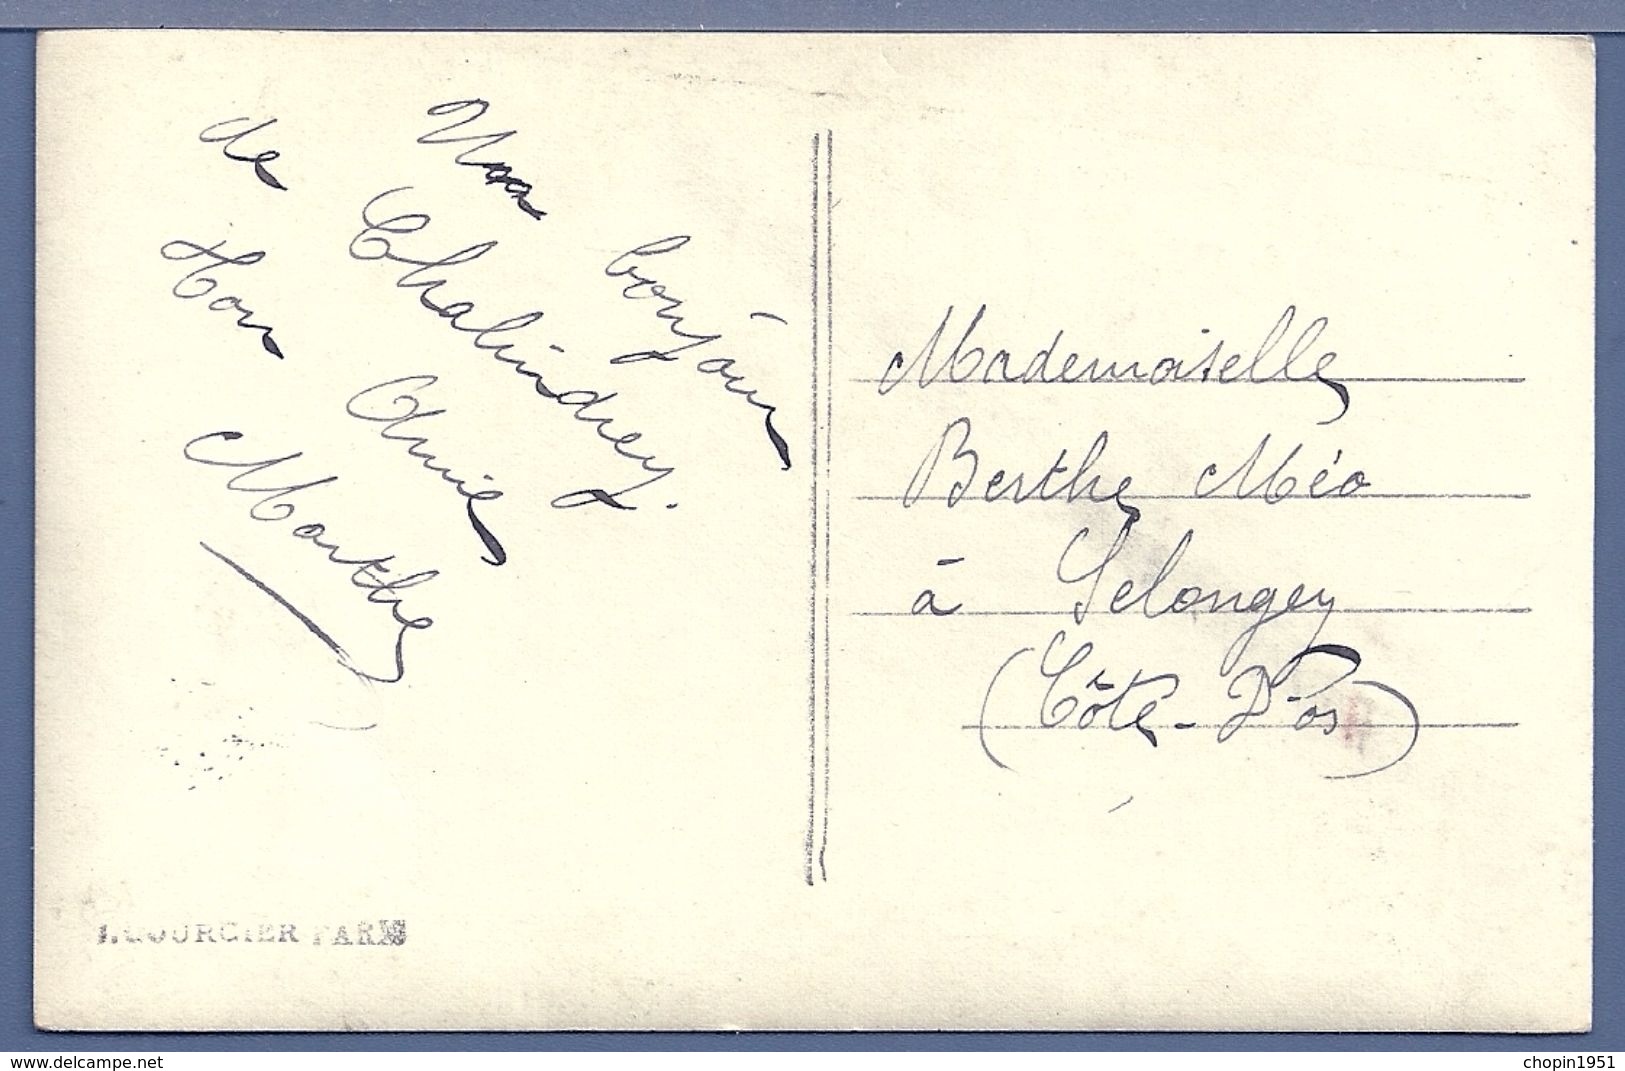 Un bonjour
de Chalindrey.
Ton Amie
Marthe
Mademoiselle
Berthe Méo
à Selongey
(Côte-D'or)
COURCIER PARIS
delcampe.net
chopin1951